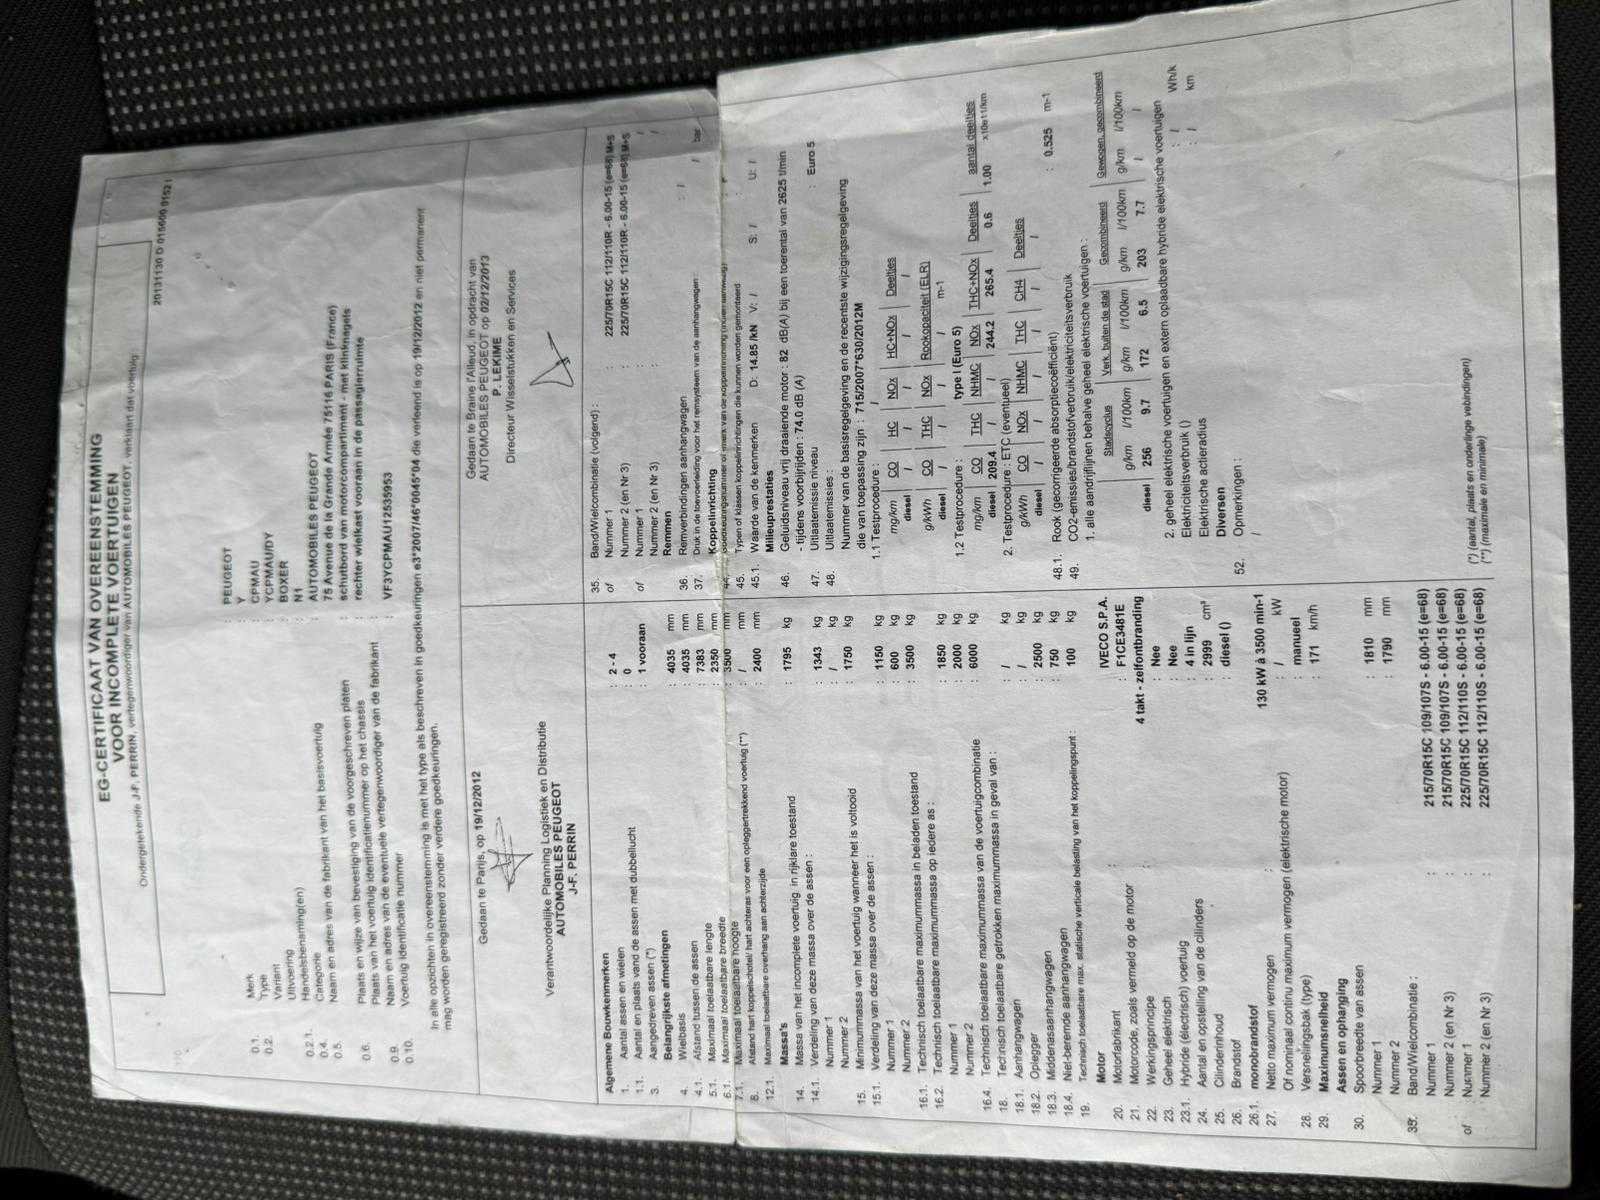 EG-CERTIFICAAT VAN OVEREENSTEMMING
VOOR INCOMPLETE VOERTUIGEN
Ondergetekende J-F. PERRIN, vertegenwoordiger van AUTOMOBILES PEUGEOT, verklaart dat voertuig:
20131130 D 015600 0152 I
0.1. Merk : PEUGEOT
0.2. Type : Y
Variant : CPMAU
Uitvoering : YCPMAU/DY
0.2.1. Handelsbenaming(en) : BOXER
0.4. Categorie : N1
0.5. Naam en adres van de fabrikant van het basisvoertuig : AUTOMOBILES PEUGEOT
75 Avenue de la Grande Armée 75116 PARIS (France)
0.6. Plaats en wijze van bevestiging van de voorgeschreven platen : schutbord van motorcompartiment - met klinknagels
Plaats van het voertuig identificatienummer op het chassis : rechter wielkast vooraan in de passagierruimte
0.9. Naam en adres van de eventuele vertegenwoordiger van de fabrikant
0.10. Voertuig identificatie nummer : VF3YCPMAU12535953
In alle opzichten in overeenstemming is met het type als beschreven in goedkeuringen e3*2007/46*0045*04 die verleend is op 19/12/2012 en niet permanent
mag worden geregistreerd zonder verdere goedkeuringen.
Gedaan te Parijs, op 19/12/2012
Verantwoordelijke Planning Logistiek en Distributie
AUTOMOBILES PEUGEOT
J-F. PERRIN
Gedaan te Braine l'Alleud, in opdracht van
AUTOMOBILES PEUGEOT op 02/12/2013
P. LEKIME
Directeur Wisselstukken en Services
Algemene Bouwkenmerken
1. Aantal assen en wielen : 2 - 4
1.1. Aantal en plaats vand de assen met dubbellucht : 0
3. Aangedreven assen (*) : 1 vooraan
Belangrijkste afmetingen
4. Wielbasis : 4035 mm
4.1. Afstand tussen de assen : 4035 mm
5.1. Maximaal toelaatbare lengte : 7383 mm
6.1. Maximaal toelaatbare breedte : 2350 mm
7.1. Maximaal toelaatbare hoogte : 3500 mm
8. Afstand hart koppelschotel/ hart achteras voor een opleggertrekkend voertuig (**) : / mm
12.1. Maximaal toelaatbare overhang aan achterzijde : 2400 mm
Massa's
14. Massa van het incomplete voertuig in rijklare toestand : 1795 kg
14.1. Verdeling van deze massa over de assen :
Nummer 1 : 1343 kg
Nummer 2 : / kg
15. Minimummassa van het voertuig wanneer het is voltooid : 1750 kg
15.1. Verdeling van deze massa over de assen :
Nummer 1 : 1150 kg
Nummer 2 : 600 kg
16.1. Technisch toelaatbare maximummassa in beladen toestand : 3500 kg
16.2. Technisch toelaatbare maximummassa op iedere as :
Nummer 1 : 1850 kg
Nummer 2 : 2000 kg
16.4. Technisch toelaatbare maximummassa van de voertuigcombinatie : 6000 kg
18. Technisch toelaatbare getrokken maximummassa in geval van :
18.1. Aanhangwagen : / kg
18.2. Oplegger : / kg
18.3. Middenasaanhangwagen : 2500 kg
18.4. Niet-beremde aanhangwagen : 750 kg
19. Technisch toelaatbare max. statische verticale belasting van het koppelingspunt : 100 kg
Motor
20. Motorfabrikant : IVECO S.P.A.
21. Motorcode, zoals vermeld op de motor : F1CE3481E
22. Werkingsprincipe : 4 takt - zelfontbranding
23. Geheel elektrisch : Nee
23.1. Hybride (électrisch) voertuig : Nee
24. Aantal en opstelling van de cilinders : 4 in lijn
25. Cilinderinhoud : 2999 cm³
26. Brandstof : diesel ()
26.1. monobrandstof
27. Netto maximum vermogen : 130 kW à 3500 min-1
Of nominaal continu maximum vermogen (elektrische motor) : / kW
28. Versnelingsbak (type) : manueel
29. Maximumsnelheid : 171 km/h
Assen en ophanging
30. Spoorbreedte van assen
Nummer 1 : 1810 mm
Nummer 2 : 1790 mm
35. Band/Wielcombinatie :
Nummer 1 : 215/70R15C 109/107S - 6.00-15 (e=68)
Nummer 2 (en Nr 3) : 215/70R15C 109/107S - 6.00-15 (e=68)
of Nummer 1 : 225/70R15C 112/110S - 6.00-15 (e=68)
Nummer 2 (en Nr 3) : 225/70R15C 112/110S - 6.00-15 (e=68)
35. Band/Wielcombinatie (volgend) :
of Nummer 1 : 225/70R15C 112/110R - 6.00-15 (e=68) M+S
Nummer 2 (en Nr 3) : 225/70R15C 112/110R - 6.00-15 (e=68) M+S
of Nummer 1 : /
Nummer 2 (en Nr 3) : /
Remmen
36. Remverbindingen aanhangwagen : /
37. Druk in de toevoerleiding voor het remsysteem van de aanhangwagen : / bar
Koppelinrichting
44.
45. Typen of klassen koppelinrichtingen die kunnen worden gemonteerd :
45.1. Waarde van de kenmerken D: 14.85 /kN V: / S: / U: /
Milieuprestaties
46. Geluidsniveau vrij draaiende motor : 82 dB(A) bij een toerental van 2625 t/min
- tijdens voorbijrijden : 74.0 dB (A)
47. Uitlaatemissie niveau : Euro 5
48. Uitlaatemissies :
Nummer van de basisregelgeving en de recentste wijzigingsregelgeving
die van toepassing zijn : 715/2007*630/2012M
1.1 Testprocedure : /
mg/km CO HC NOx HC+NOx Deeltjes
diesel / / / / /
g/kWh CO THC NOx Rookopaciteit (ELR)
diesel / / / / m-1
1.2 Testprocedure : type I (Euro 5)
mg/km CO THC NHMC NOx THC+NOx Deeltjes aantal deeltjes
diesel 209.4 / / 244.2 265.4 0.6 1.00 x10e11/km
2. Testprocedure : ETC (eventueel)
g/kWh CO NOx NHMC THC CH4 Deeltjes
diesel / / / / / /
48.1. Rook (gecorrigeerde absorptiecoëfficiënt) : 0.525 m-1
49. CO2-emissies/brandstofverbruik/elektriciteitsverbruik
1. alle aandrijflijnen behalve geheel elektrische voertuigen :
Stadscyclus Verk. buiten de stad Gecombineerd Gewogen, gecombineerd
g/km l/100km g/km l/100km g/km l/100km g/km l/100km
diesel 256 9.7 172 6.5 203 7.7 / /
2. geheel elektrische voertuigen en extern oplaadbare hybride elektrische voertuigen
Elektriciteitsverbruik () : / Wh/k
Elektrische actieradius : / km
Diversen
52. Opmerkingen :
/
(*) (aantal, plaats en onderlinge vebindingen)
(**) (maximale en minimale)